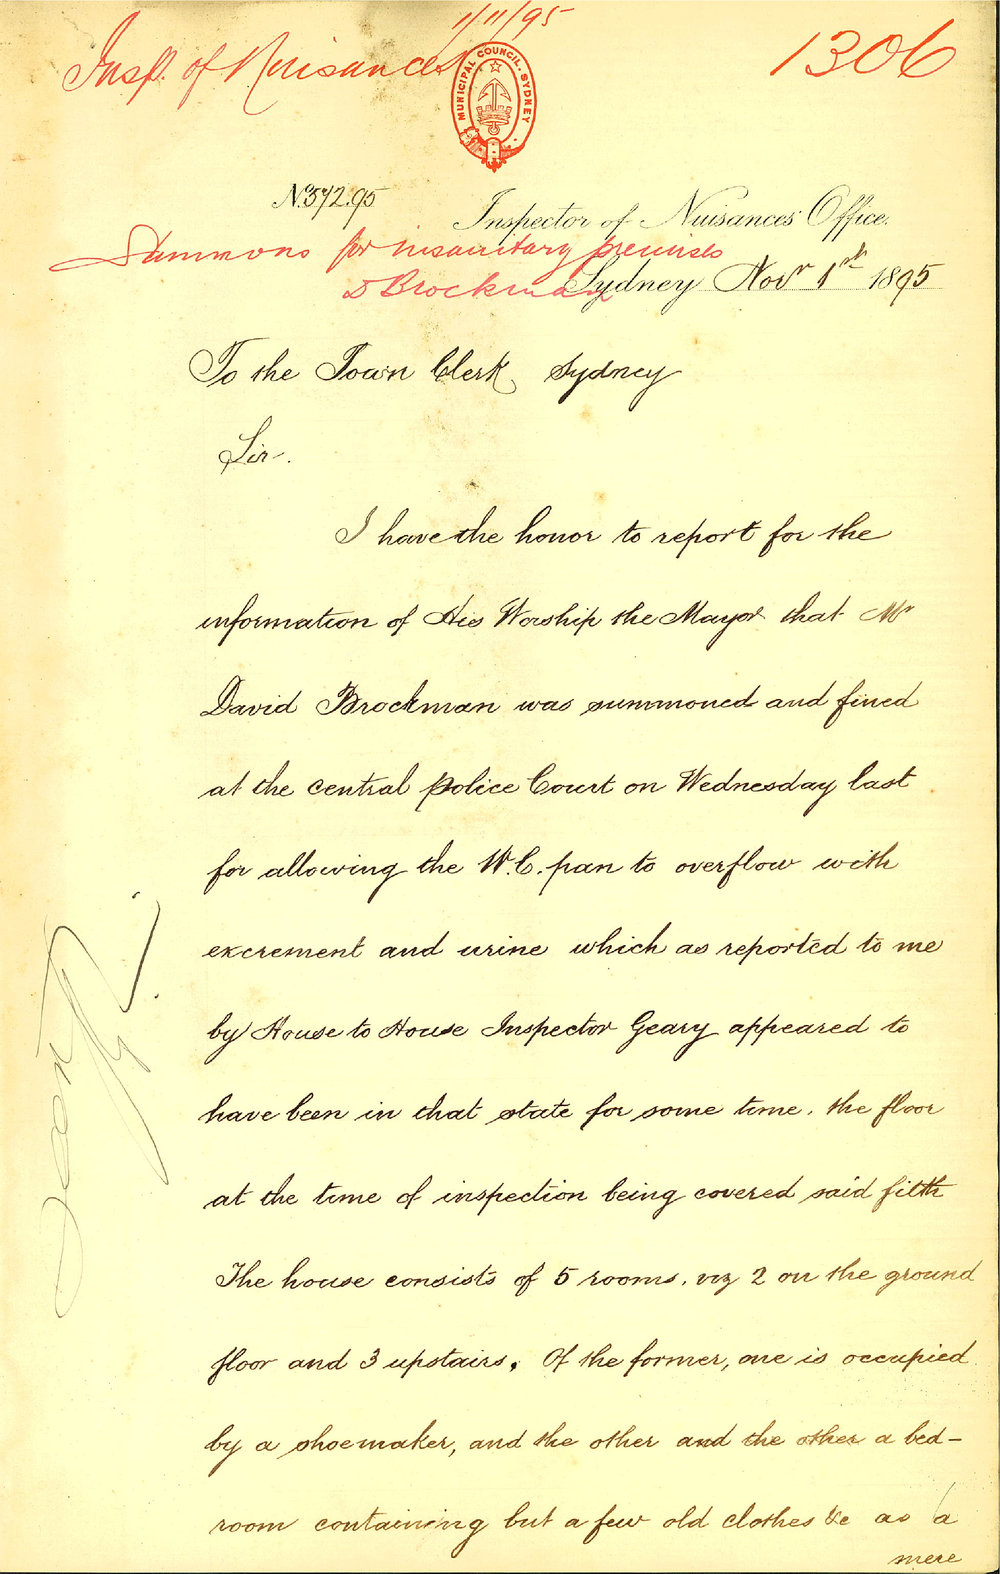 1/11/95
Insp. of Nuisances
1306
MUNICIPAL COUNCIL. SYDNEY
No. 372.95
Inspector of Nuisances' Office.
Summons for insanitary premises
D Brockman
Sydney Novr 1st 1895
To the Town Clerk, Sydney
Sir.
I have the honor to report for the
information of His Worship the Mayor that Mr
David Brockman was summoned and fined
at the central police Court on Wednesday last
for allowing the W.C. pan to overflow with
excrement and urine which as reported to me
by House to House Inspector Geary appeared to
have been in that state for some time. the floor
at the time of inspection being covered said filth
The house consists of 5 rooms. viz 2 on the ground
floor and 3 upstairs. Of the former, one is occupied
by a shoemaker, and the other and the other a bed-
room containing but a few old clothes &c as a
mere